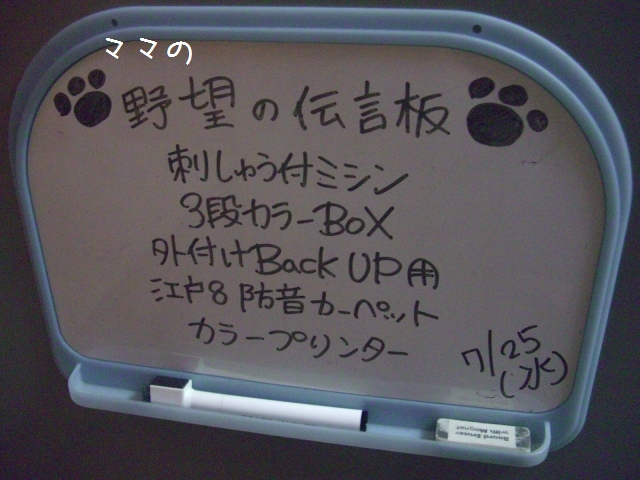 ママの
野望の伝言板
刺しゅう付ミシン
3段カラーBOX
外付けBack UP用
江戸8 防音カーペット
カラープリンター
7/25
(水)
Board Eraser
with Magnet